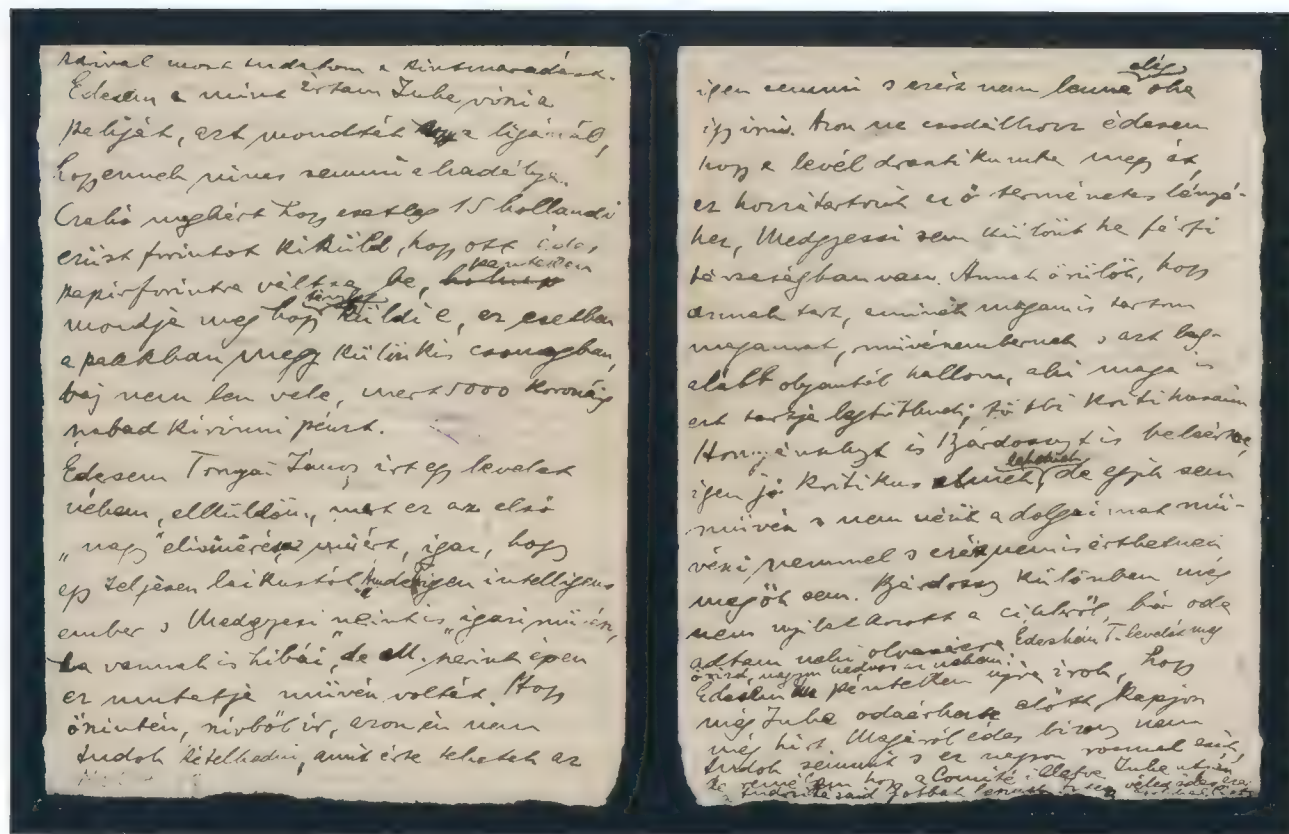 most tudatom a kintmaradást.
Édesem a mint írtam Juhe viszi a
paliját, azt mondták a ligánál,
hogy ennek nincs semmi akadálya.
megkért hogy esetleg 15 hollandi
ezüst forintot kiküld, hogy ott édes
papirforintra váltsa be, pénteken
mondja meg hogy küldi e, ez esetben
a pakkban megy külön kis csomagban,
baj nem lesz vele, mert 5000 koronáig
szabad kivinni pénzt.
Édesem Tonyai János írt egy levelet
nekem, elküldöm, mert ez az első
„nagy” elismerés, igaz, hogy
egy teljesen laikustól, igen intelligens
ember s Medgyesi szerint is igazi művész,
ha vannak is hibái, de M. szerint épen
ez mutatja művész voltát. Hogy
őszintén, szívből ír, azon én nem
tudok kételkedni, amit érte tehetek az
igen semmi s ezért nem lenne oka
így írni. Azon ne csodálkozz édesem
hogy a levél drastikumba megy át,
ez hozzátartozik az ő természetes lényé-
hez, Medgyessi sem különb ha férfi
társaságban van. Annak örülök, hogy
annak tart, aminek magam is tartom
magamat, művészembernek s azt leg-
alább olyantól hallom, aki maga is
ezt tartja legtöbbnek, többi kritikusaim
is Bárdosszyt is beleértve,
igen jó kritikus lehetnek, de egyik sem
művész s nem nézik a dolgaimat mű-
vészi szemmel s ezért nem is érthetnek
meg sem. Bárdossy különben még
nem nyilatkozott a cikkről, bár oda
adtam neki olvasásra Édeském T. levelét meg
őrizd, nagyon kedves az nekem.
Édesem pénteken újra írok, hogy
még Juhe odaérkezte előtt kapjon
még hírt. Magáról édes bizony nem
tudok semmit s ez nagyon rosszul esik,
de remélem hogy a Comité illetve Juhe utján